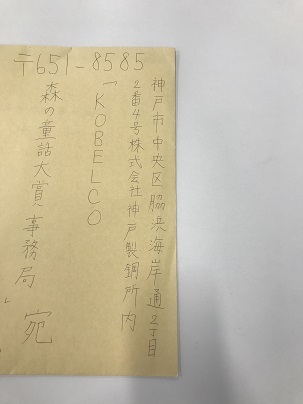 〒651-8585
神戸市中央区脇浜海岸通2丁目
2番4号株式会社神戸製鋼所内
「KOBELCO
森の童話大賞」事務局 宛